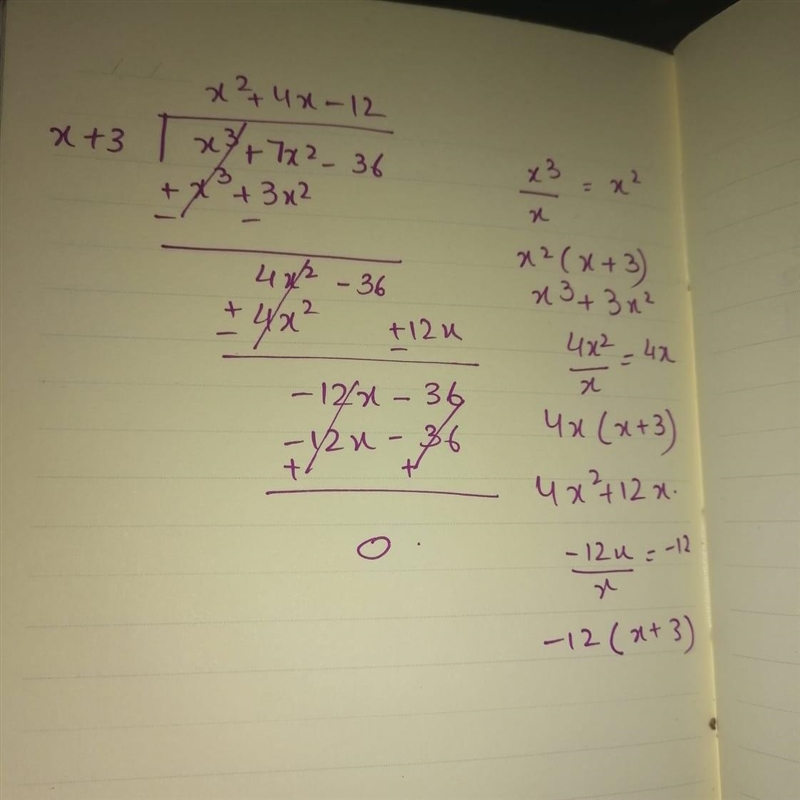 x² + 4x - 12
x + 3 | x³ + 7x² - 36
+ x³ + 3x²
- -
4x² - 36
+ 4x² + 12x
- -
-12x - 36
-12x - 36
+ +
0
x³/x = x²
x² (x + 3)
x³ + 3x²
4x²/x = 4x
4x (x + 3)
4x² + 12x.
-12x/x = -12
-12 (x + 3)